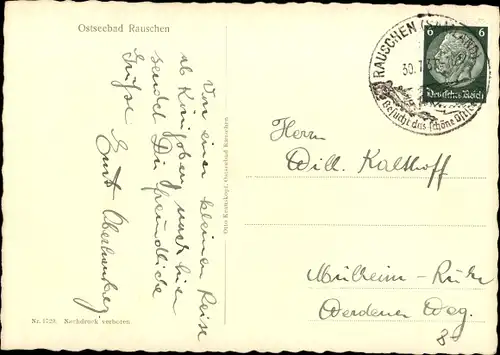 Ostseebad Rauschen
Von einer kleinen Reise
ab Königsberg nach hier
sendet Dir freundliche
Grüße
Ernst
Nr. 1529. Nachdruck verboten.
Ostseebad Rauschen
RAUSCHEN (SAMLAND)
30.7.
Besucht das schöne Ostseebad
6 6
Deutsches Reich
Herrn
Will. Kalthoff
Mülheim-Ruhr
Werdener Weg.